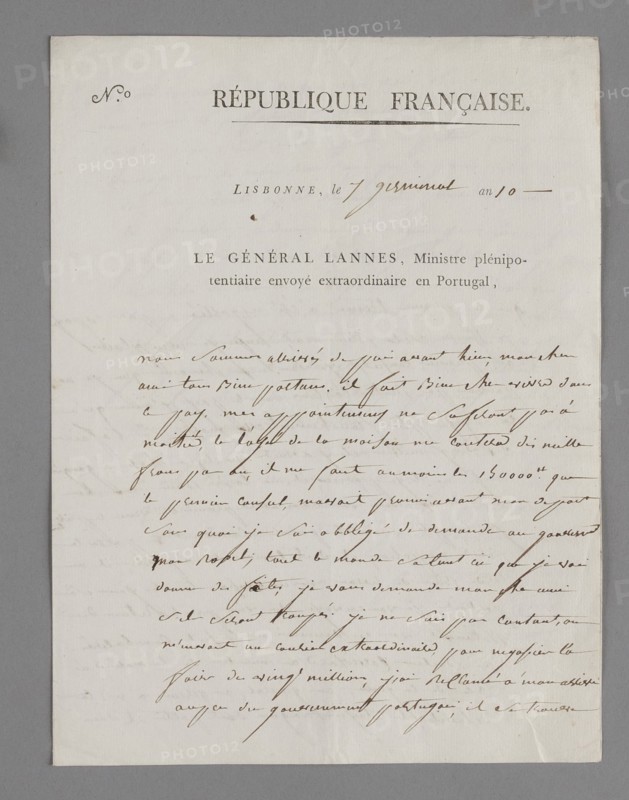 N.º
RÉPUBLIQUE FRANÇAISE.
LISBONNE, le 7 germinal an 10 —
LE GÉNÉRAL LANNES, Ministre plénipo-
tentiaire envoyé extraordinaire en Portugal,
nous sommes arrivés de puis avant hier mon cher
ami tous Bien portans. il fait Bien cher vivre dans
ce pays. mes appointemens ne sufiront pas à
moitié, le de la maison me coutera dix mille
francs par an, il me faut au moins les 150000 que
le premier consul, m'avait promis avant mon depart
sans quoi je sais obbligé de demande au
mon rapel, tout le monde s'atent ici que je vai
donne des fetes, je vous demande mon cher ami
s'il seront trompés. je ne suis pas contant, on
m'avait un courier extraordinaire pour negosier la
faire de vingt million, j'ai Reclamé a mon arrivé
aupre du gouvernement portugai, il se trouve
PHOTO12